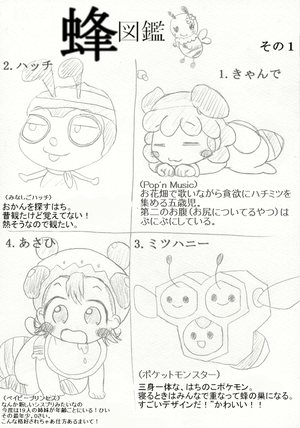 蜂図鑑
その1
1.きゃんで
(Pop'n Music)
お花畑で歌いながら貪欲にハチミツを
集める五歳児。
第二のお腹(お尻についてるやつ)は
ぷにぷにしている。
2.ハッチ
(みなしごハッチ)
おかんを探すはち。
昔観たけど覚えてない!
熱そうなので観たい。
3.ミツハニー
(ポケットモンスター)
三身一体な、はちのこポケモン。
寝るときはみんなで重なって蜂の巣になる。
すごいデザインだ!かわいい!!
4.あさひ
(ベイビープリンセス)
なんか新しいシスプリみたいなの
今度は19人の姉妹が年齢ごとにいる!ひい
その最年少。0さい。
こんな格好されちゃあ仕方あるまいて!